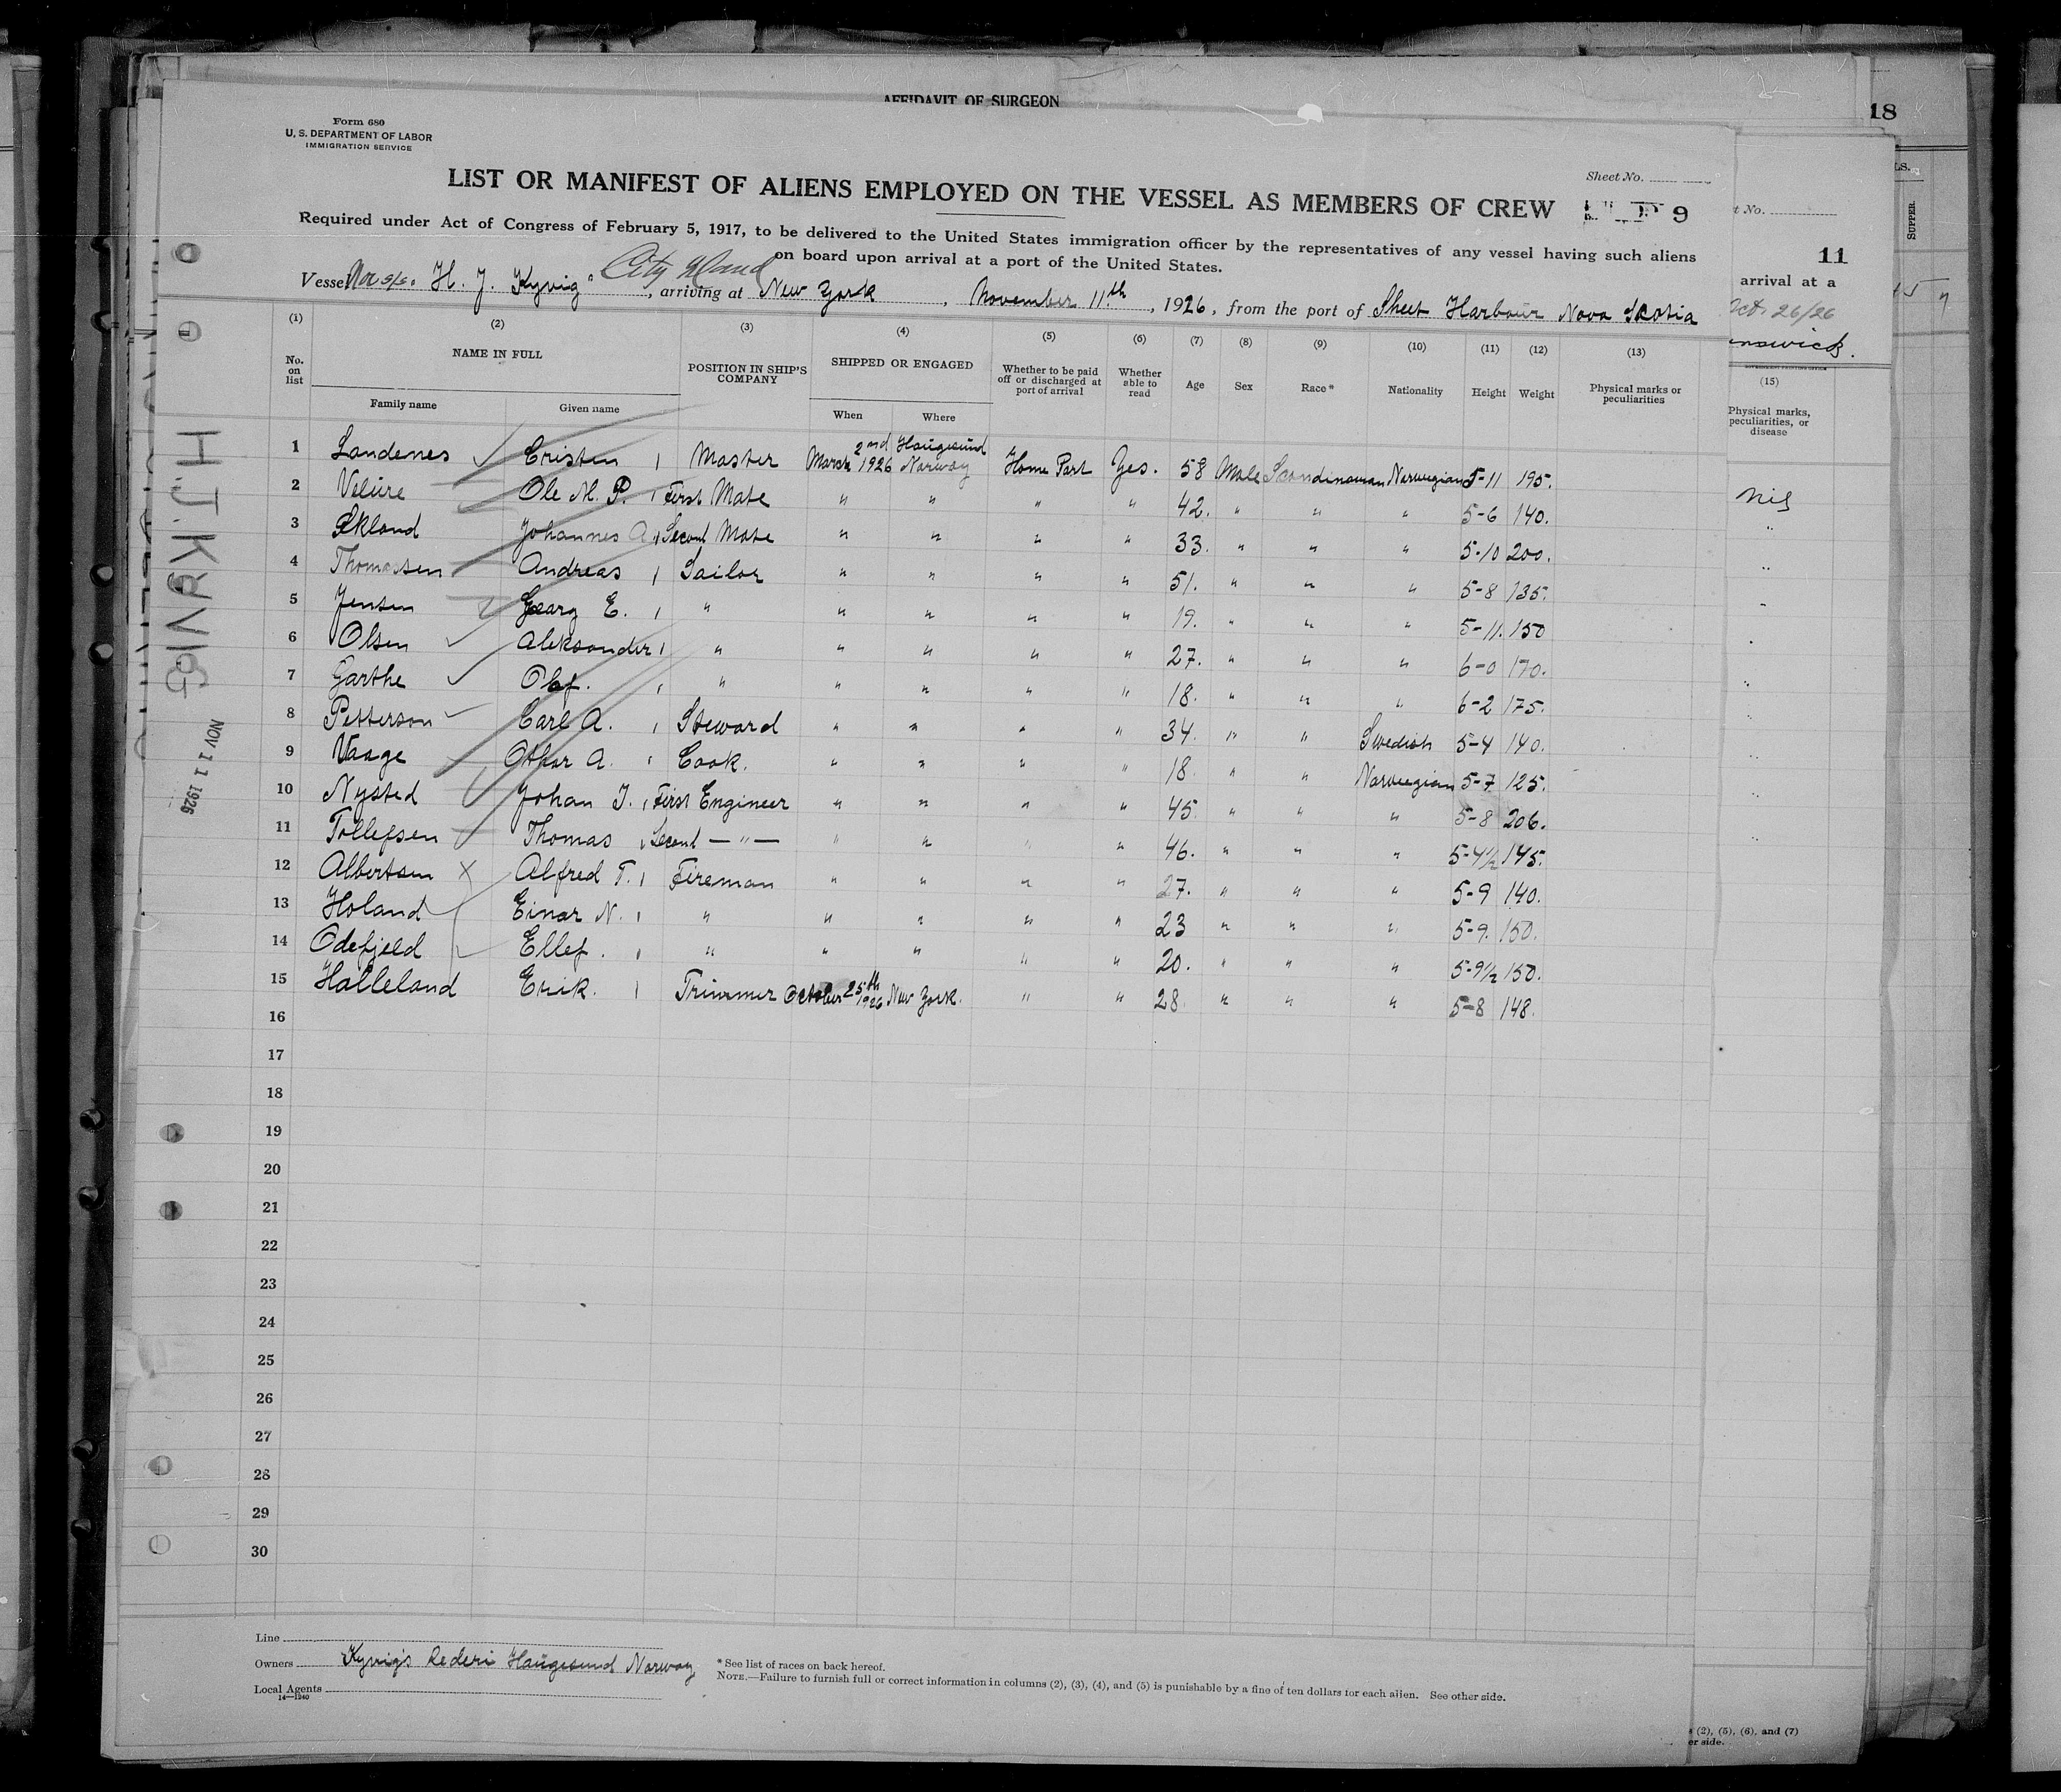 AFFIDAVIT OF SURGEON
18
Form 680
U. S. DEPARTMENT OF LABOR
IMMIGRATION SERVICE
Sheet No.
LIST OR MANIFEST OF ALIENS EMPLOYED ON THE VESSEL AS MEMBERS OF CREW
9
Required under Act of Congress of February 5, 1917, to be delivered to the United States immigration officer by the representatives of any vessel having such aliens
on board upon arrival at a port of the United States.
City Island
Vessel Nor s/s. H. J. Kyvig", arriving at New York, November 11th, 1926, from the port of Sheet Harbour Nova Scotia
(1) (2) (3) (4) (5) (6) (7) (8) (9) (10) (11) (12) (13)
No. on list NAME IN FULL POSITION IN SHIP'S COMPANY SHIPPED OR ENGAGED Whether to be paid off or discharged at port of arrival Whether able to read Age Sex Race* Nationality Height Weight Physical marks or peculiarities
Family name Given name When Where
1 Landenes Cristen Master March 2nd 1926 Haugesund Norway Home Port Yes. 58 Male Scandinavian Norwegian 5-11 195.
2 Velure Ole M. P. First Mate " " " " 42. " " " 5-6 140.
3 Ekland Johannes A. Second Mate " " " " 33. " " " 5-10 200.
4 Thomassen Andreas Sailor " " " " 51. " " " 5-8 135.
5 Jensen Georg E. " " " " " 19. " " " 5-11. 150
6 Olsen Aleksander " " " " " 27. " " " 6-0 170.
7 Garthe Olaf. " " " " " 18. " " " 6-2 175.
8 Petterson Carl A. Steward " " " " 34. " " Swedish 5-4 140.
9 Vaage Othar A. Cook. " " " " 18. " " Norwegian 5-7 125.
10 Nysted Johan J. First Engineer " " " " 45. " " " 5-8 206.
11 Tollefsen Thomas Second — " — " " " " 46. " " " 5-4½ 145.
12 Albertsen X Alfred T. Fireman " " " " 27. " " " 5-9 140.
13 Holand Einar N. " " " " " 23 " " " 5-9. 150.
14 Odefjeld Ellef. " " " " " 20. " " " 5-9½ 150.
15 Halleland Erik. Trimmer October 25th 1926 New York. " " 28. " " " 5-8 148.
16
17
18
19
20
21
22
23
24
25
26
27
28
29
30
Line
Owners Kyvigs Rederi Haugesund Norway
Local Agents
14—1240
* See list of races on back hereof.
NOTE.—Failure to furnish full or correct information in columns (2), (3), (4), and (5) is punishable by a fine of ten dollars for each alien. See other side.
H.J. KYVIG
NOV 11 1926
t No.
11
arrival at a
Oct. 26/26
nswick.
(15)
Physical marks, peculiarities, or disease
nil
SUPPER.
s (2), (5), (6), and (7)
er side.